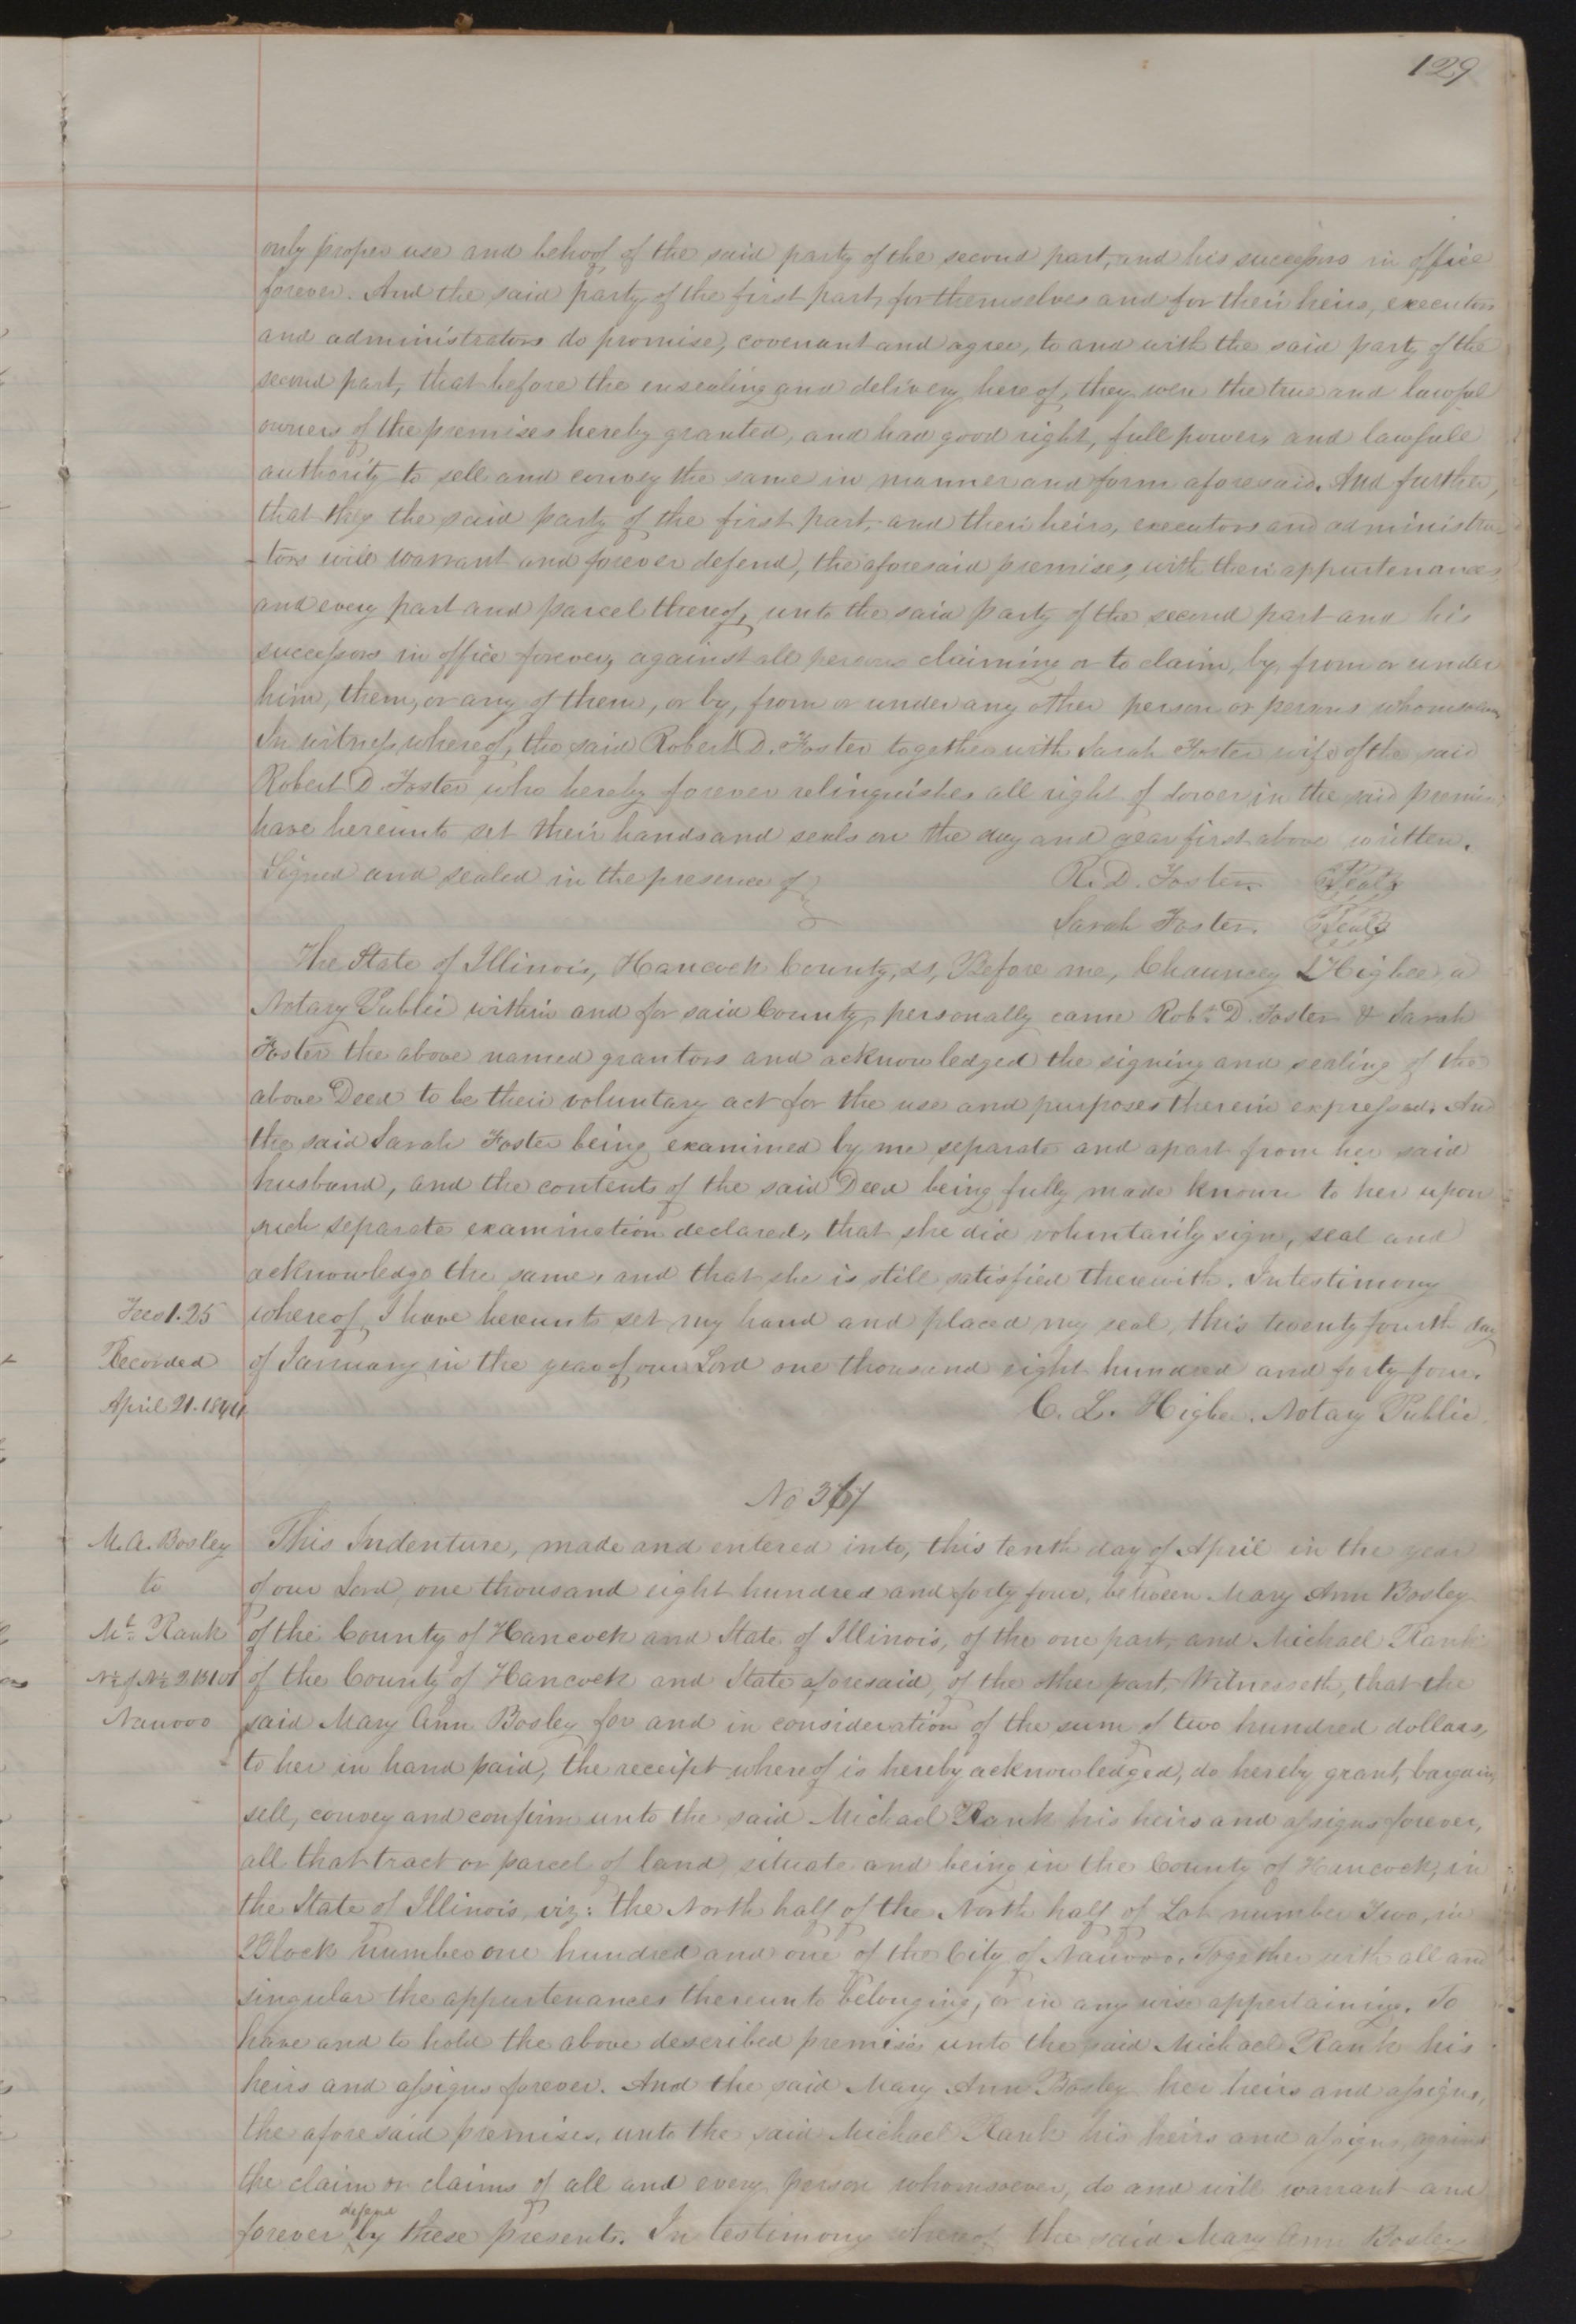 129
only proper use and behoof of the said party of the second part, and his successors in office
forever. And the said party of the first part, for themselves and for their heirs, executors
and administrators do promise, covenant and agree, to and with the said party of the
second part, that before the ensealing and delivery hereof, they were the true and lawful
owners of the premises hereby granted, and had good right, full power, and lawfull
authority to sell and convey the same in manner and form aforesaid. And further,
that they the said party of the first part, and their heirs, executors and administra-
-tors will warrant and forever defend, the aforesaid premises, with their appurtenances
and every part and parcel thereof, unto the said party of the second part and his
successors in office forever, against all persons claiming or to claim, by, from or under
him, them, or any of them, or by, from or under any other person or persons whomsoever
In witness whereof, the said Robert D. Foster together with Sarah Foster wife of the said
Robert D. Foster who hereby forever relinquishes all right of dower in the said premises
have hereunto set their hands and seals on the day and year first above written.
Signed and sealed in the presence of R. D. Foster. Seal
Sarah Foster. Seal
The State of Illinois, Hancock County, ss, Before me, Chauncey L Higbee, a
Notary Public within and for said County, personally came Robt. D. Foster & Sarah
Foster the above named grantors and acknowledged the signing and sealing of the
above Deed to be their voluntary act for the use and purposes therein expressed. And
the said Sarah Foster being examined by me separate and apart from her said
husband, and the contents of the said Deed being fully made known to her upon
such separate examination declared, that she did voluntarily sign, seal and
acknowledge the same, and that she is still satisfied therewith. In testimony
Fees 1.25 whereof, I have hereunto set my hand and placed my seal, this twenty fourth day
Recorded of January in the year of our Lord one thousand eight hundred and forty four.
April 21. 1844 C. L. Higbee. Notary Public.
No 367
M. A. Bosley This Indenture, made and entered into, this tenth day of April in the year
to of our Lord, one thousand eight hundred and forty four, between Mary Ann Bosley
Ml. Rank of the County of Hancock and State of Illinois, of the one part, and Michael Rank
N½ of N½ 2 B 101 of the County of Hancock and State aforesaid, of the other part, Witnesseth, that the
Nauvoo said Mary Ann Bosley for and in consideration of the sum of two hundred dollars,
to her in hand paid, the receipt whereof is hereby acknowledged, do hereby grant, bargain,
sell, convey and confirm unto the said Michael Rank his heirs and assigns forever,
all that tract or parcel of land, situate and being in the County of Hancock, in
the State of Illinois, viz: the North half of the North half of Lot number Two, in
Block number one hundred and one of the City of Nauvoo. Together with all and
singular the appurtenances thereunto belonging, or in any wise appertaining. To
have and to hold the above described premises unto the said Michael Rank his
heirs and assigns forever. And the said Mary Ann Bosley her heirs and assigns,
the aforesaid premises, unto the said Michael Rank his heirs and assigns, against
the claim or claims of all and every person whomsoever, do and will warrant and
forever defend by these presents. In testimony whereof the said Mary Ann Bosley